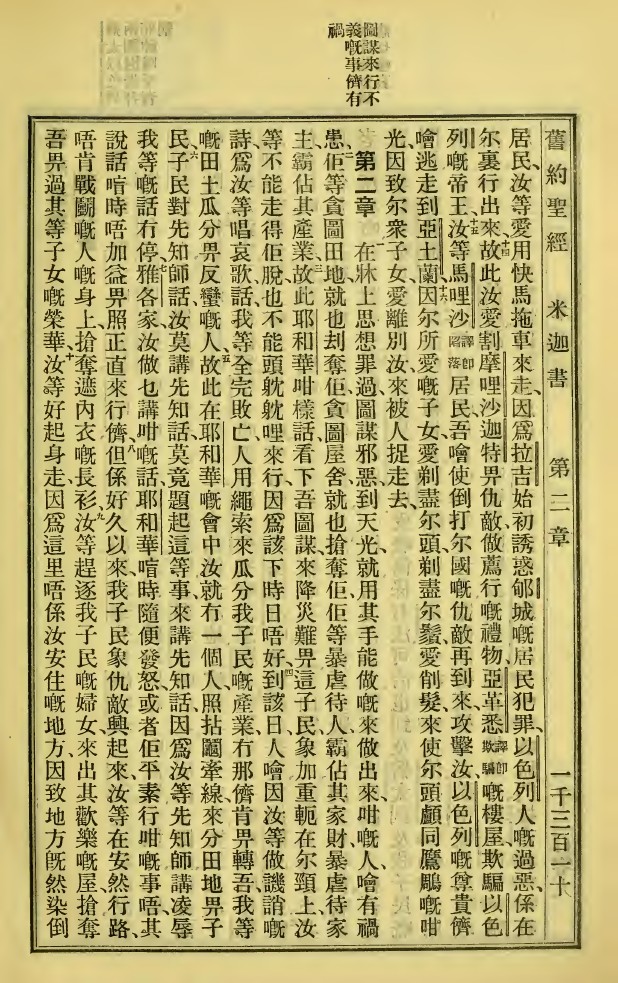 圖謀來行不
義嘅事儕有
禍
舊約聖經 米迦書 第二章 一千三百一十
居民、汝等愛用快馬拖車來走、因爲拉吉始初誘惑郇城嘅居民犯罪、以色列人嘅過惡、係在
尔裏行出來、十四故此汝愛割摩哩沙迦特畀仇敵做薦行嘅禮物、亞革悉譯卽欺騙嘅樓屋欺騙以色
列嘅帝王、十五汝等馬哩沙譯卽陷落居民、吾噲使倒打尔國嘅仇敵再到來攻擊汝、以色列嘅尊貴儕
噲逃走到亞土蘭、十六因尔所愛嘅子女、愛剃盡尔頭、剃盡尔鬚、愛削髮、來使尔頭顱同鷹鵰嘅咁
光、因致尔衆子女、愛離別汝來被人捉走去、
第二章 一在牀上思想罪過圖謀邪惡、到天光就用其手能做嘅來做出來、咁嘅人噲有禍
患、二佢等貪圖田地就也刦奪、佢貪圖屋舍就也搶奪、佢佢等暴虐待人、霸佔其家財、暴虐待家
主、霸佔其產業、三故此耶和華咁樣話、看下吾圖謀來降災難畀這子民、象加重軛在尔頸上、汝
等不能走得佢脫、也不能頭躭躭哩來行、因爲該下時日唔好、四到該日、人噲因汝等做譏誚嘅
詩、爲汝等唱哀歌話、我等全完敗亡、人用繩索來瓜分我子民嘅產業、冇那儕肯畀轉吾、我等
嘅田土瓜分畀反蠻嘅人、五故此在耶和華嘅會中、汝就冇一個人、照拈鬮牽線來分田地畀子
民、六子民對先知師話、汝莫講先知話、莫竟題起這等事、來講先知話、因爲汝等先知師講凌辱
我等嘅話冇停、七雅各家汝做乜講咁嘅話、耶和華喑時隨便發怒、或者佢平素行咁嘅事唔、其
說話喑時唔加益畀照正直來行儕、八但係好久以來、我子民象仇敵興起來、汝等在安然行路、
唔肯戰鬭嘅人嘅身上、搶奪遮內衣嘅長衫、九汝等趕逐我子民嘅婦女、來出其歡樂嘅屋、搶奪
吾畀過其等子女嘅榮華、十汝等好起身走、因爲這里唔係汝安住嘅地方、因致地方旣然染倒